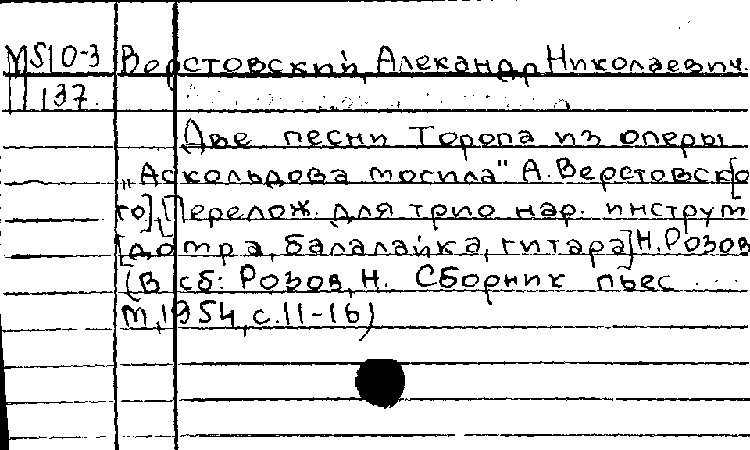 М510-3 Верстовский, Александр Николаевич.
137
Две песни Торопа из оперы
„Аскольдова могила" А. Верстовск[о
го]. Перелож. для трио нар. инструм
[домра, балалайка, гитара] Н. Розов
(В сб: Розов, Н. Сборник пьес ...
М, 1954, с. 11-16)